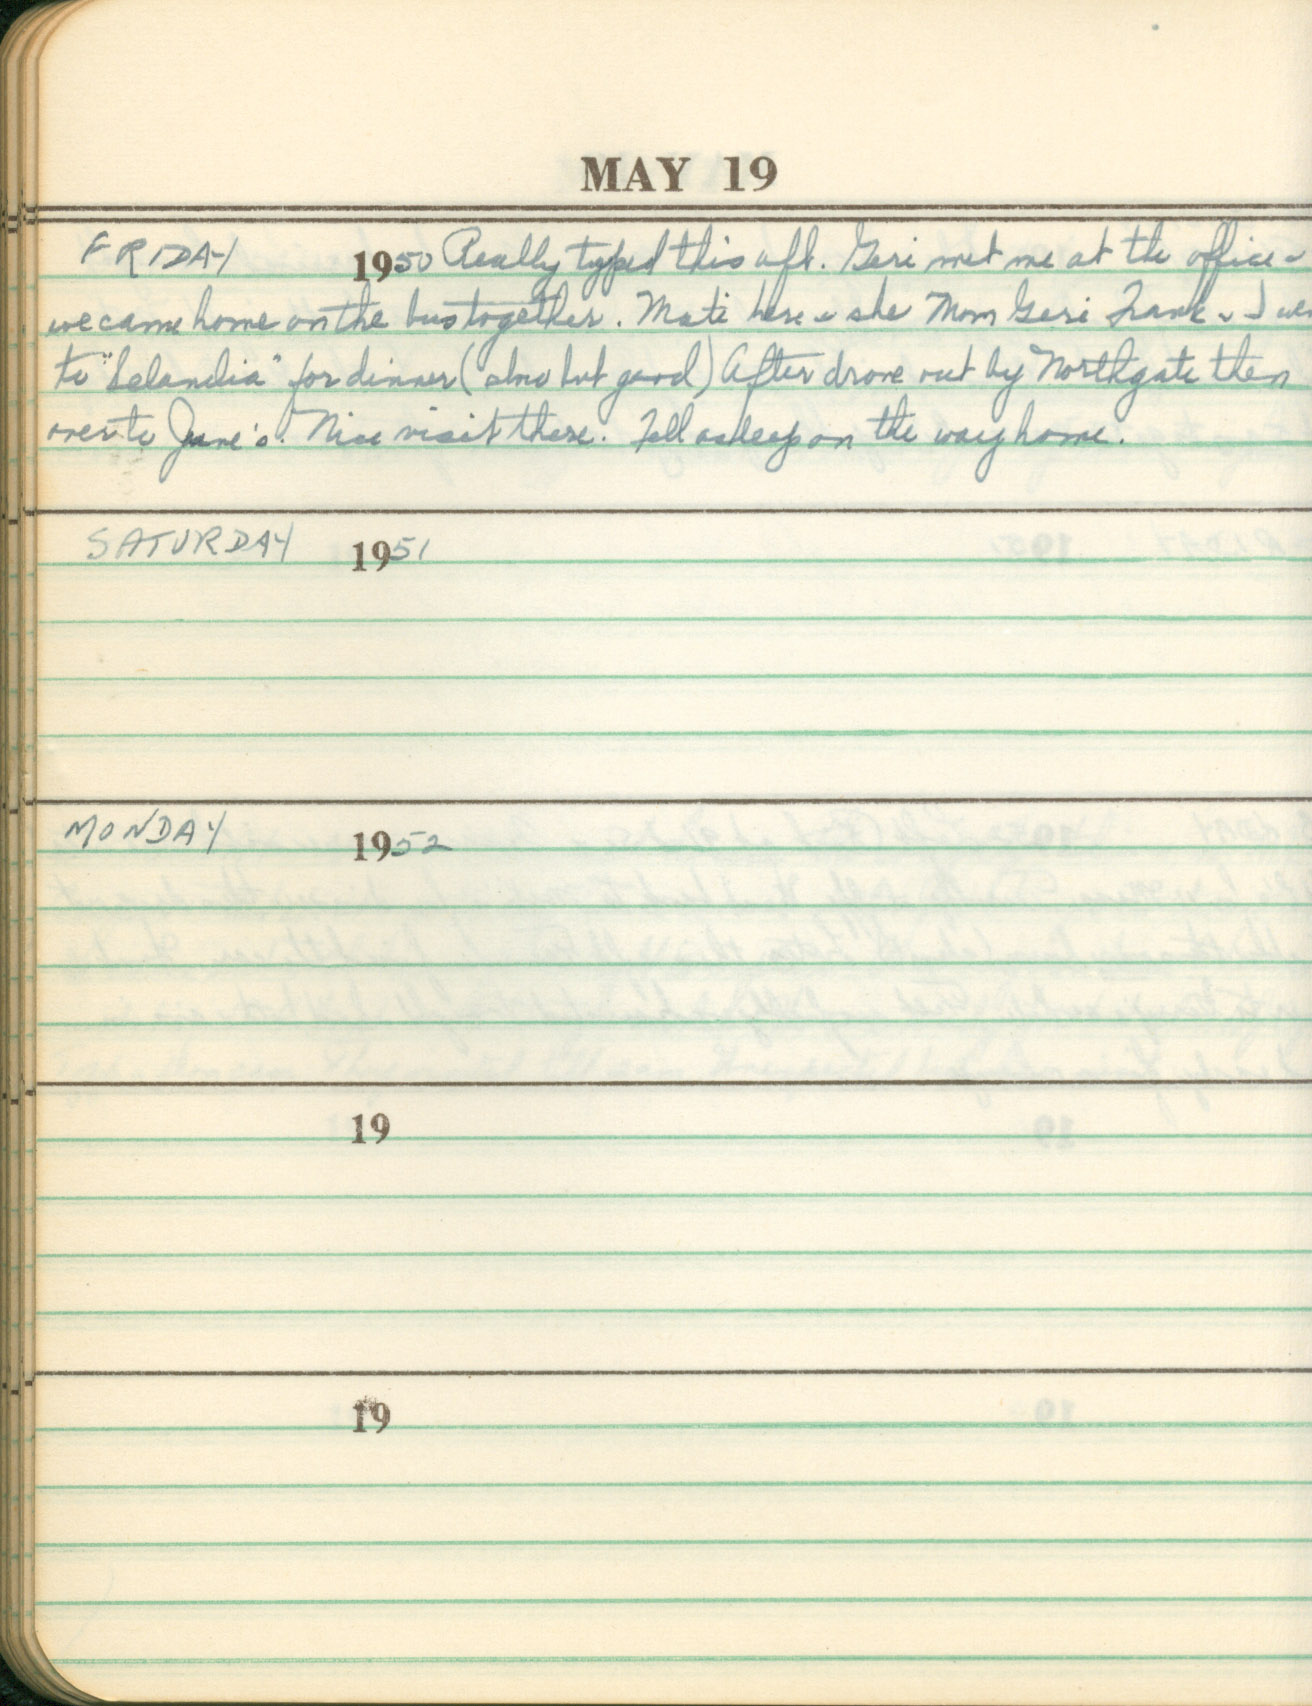 MAY 19
FRIDAY 1950 Really typed this aft. Geri met me at the office &
we came home on the bus together. Mati here & she Mom Geri Frank & I wen
to "Selandia" for dinner (slow but good) After drove out by Northgate then
over to Jane's. Nice visit there. Fell asleep on the way home.
SATURDAY 1951
MONDAY 1952
19
19